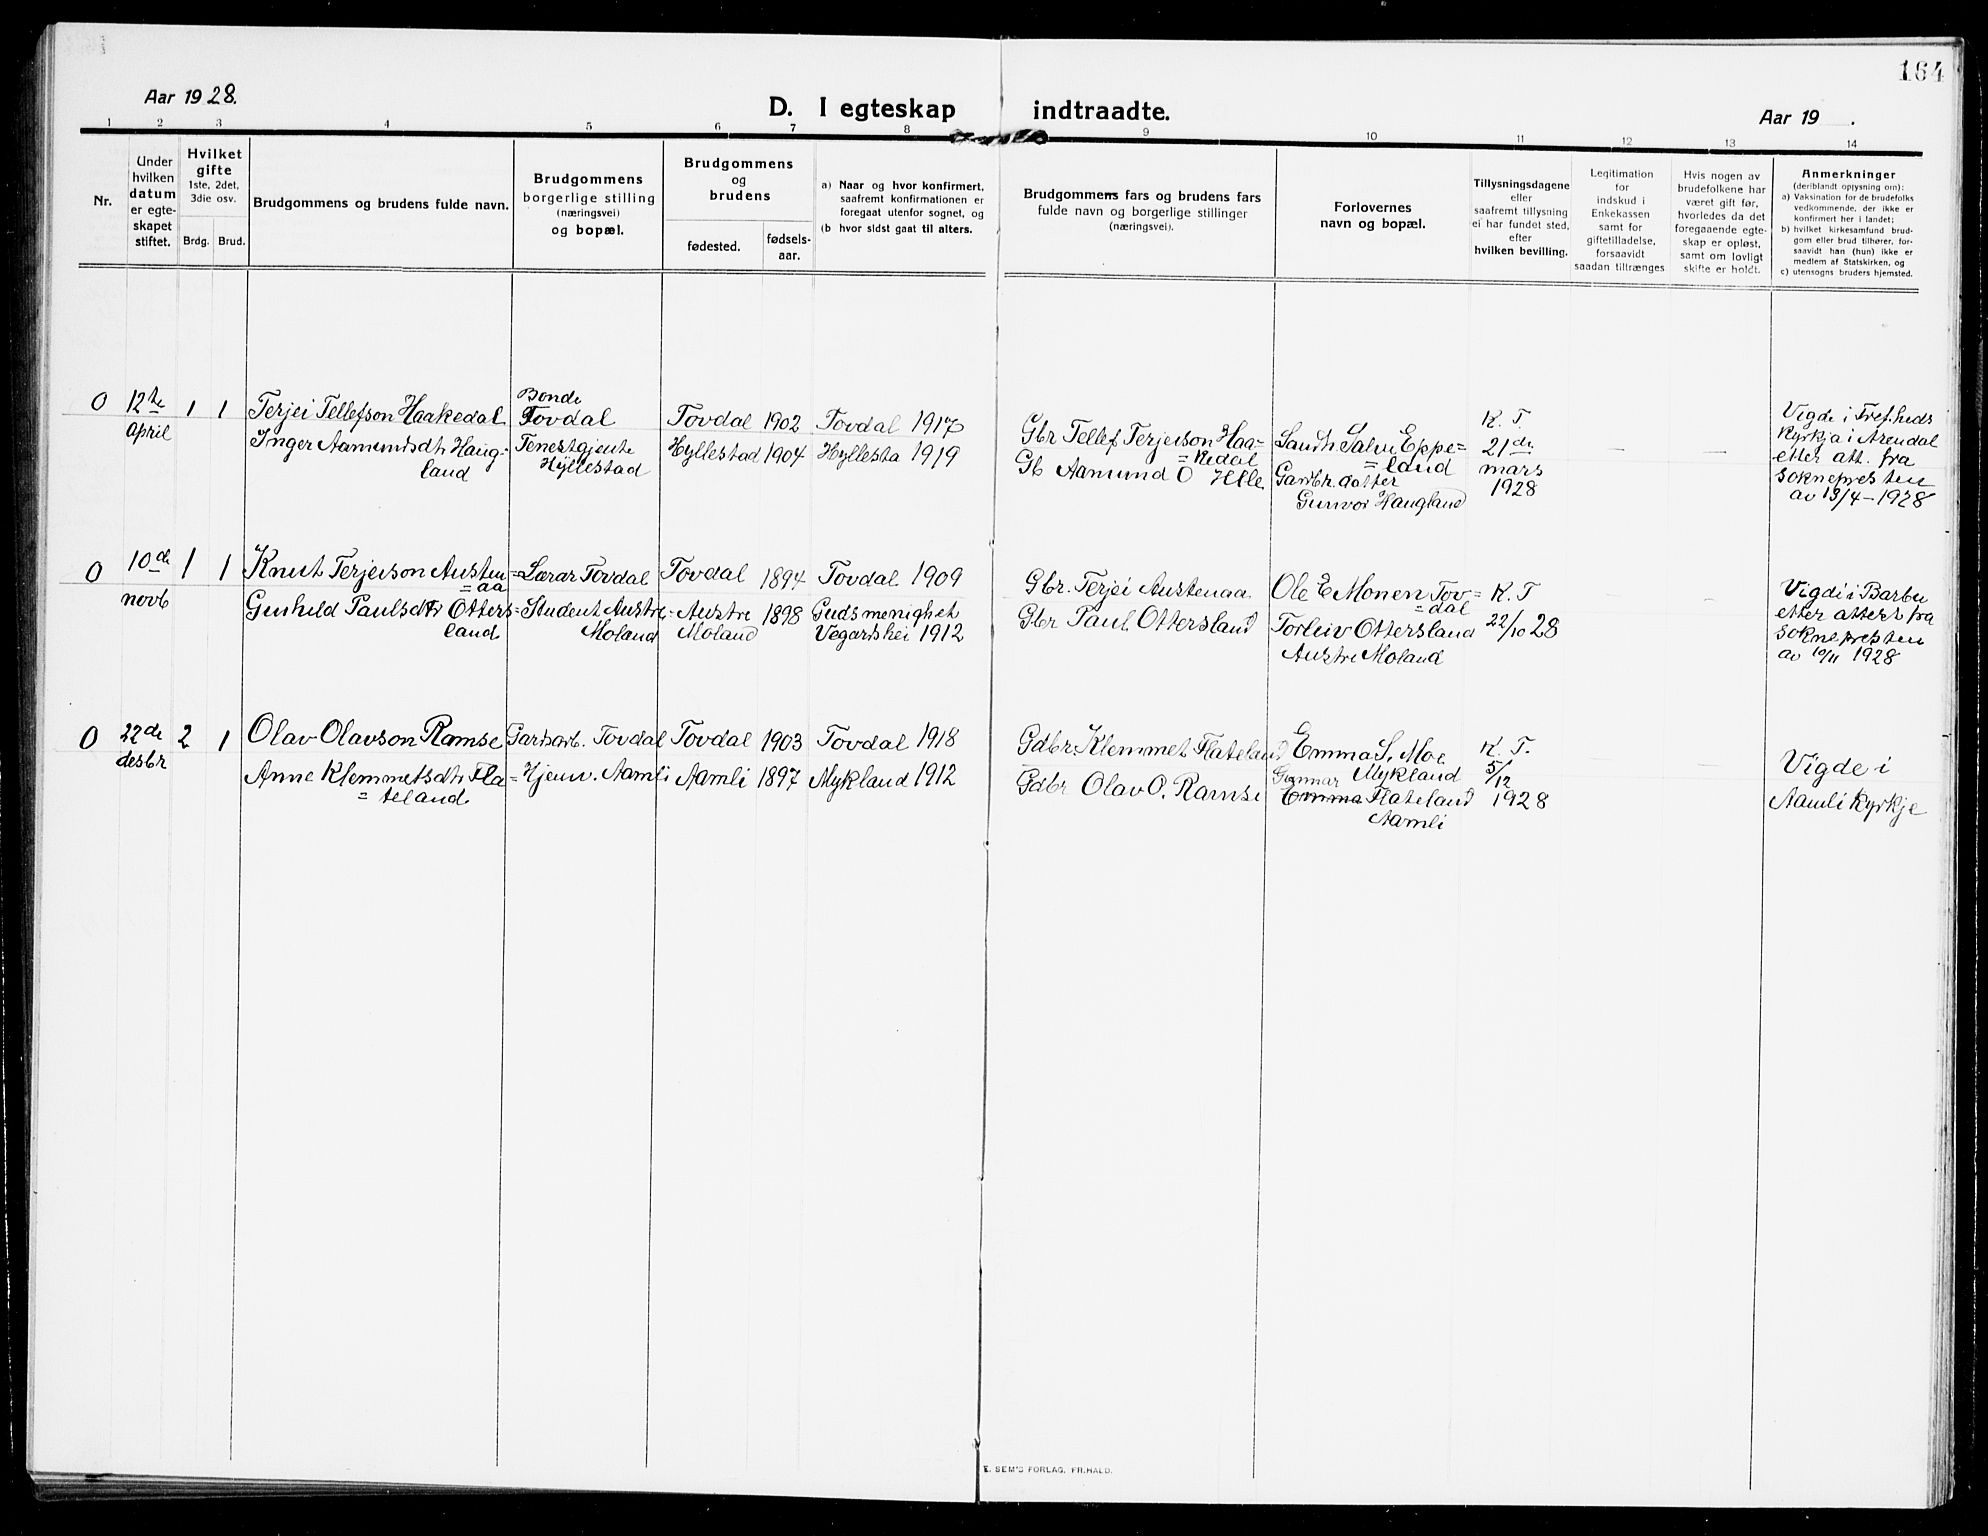 164
Aar 1928.
D. I egteskap indtraadte.
Aar 19 .
1 2 3 4 5 6 7 8 9 10 11 12 13 14
Nr.
Under
hvilken
datum
er egte-
skapet
stiftet.
Hvilket
gifte
1ste, 2det,
3die osv.
Brdg. Brud.
Brudgommens og brudens fulde navn.
Brudgommens
borgerlige stilling
(næringsvei)
og bopæl.
Brudgommens
og
brudens
fødested.
fødsels-
aar.
a) Naar og hvor konfirmert,
saafremt konfirmationen er
foregaat utenfor sognet, og
(b hvor sidst gaat til alters.
Brudgommens fars og brudens fars
fulde navn og borgerlige stillinger
(næringsvei).
Forlovernes
navn og bopæl.
Tillysningsdagene
eller
saafremt tillysning
ei har fundet sted,
efter
hvilken bevilling.
Legitimation
for
indskud i
Enkekassen
samt for
giftetilladelse,
forsaavidt
saadan tiltrænges
Hvis nogen av
brudefolkene har
været gift før,
hvorledes da det
foregaaende egte-
skap er opløst,
samt om lovligt
skifte er holdt.
Anmerkninger
(deriblandt oplysning om):
a) Vaksination for de brudefolks
vedkommende, der ikke er
konfirmert her i landet;
b) hvilket kirkesamfund brud-
gom eller brud tilhører, for-
saavidt han (hun) ikke er
medlem af Statskirken, og
c) utensogns bruders hjemsted.
0
12te
April
1 1
Terjei Tellefson Haakedal
Inger Aamundsdtr Haug-
land
Bonde
Tovdal
Tenestgjente
Hyllestad
Tovdal 1902
Hyllestad 1904
Tovdal 1917
Hyllesta 1919
Gbr Tellef Terjeison Haa=
=kedal
Gb Aamund O Helle
Sandh. Salve Eppe=
=land
Gardbr. dotter
Gunvor Haugland
K. T.
21de
mars
1928
—
—
Vigde i Trefheds
Kyrkja i Arendal
etter att. fra
soknepresten
av 13/4-1928
0
10de
novb
1 1
Knut Terjeison Austen=
=aa
Gunhild Paulsdtr Otters=
land
Lærar Tovdal
Student Austre
Moland
Tovdal 1894
Austre 1898
Moland
Tovdal 1909
Gudsmenighet
Vegardshei 1912
Gbr. Terjei Austenaa
Gbr Paul Ottersland
Ole E Monen Tov=
=dal
Torleiv Ottersland
Austre Moland
K. T
22/10 28
Vigdi i Barbu
etter attert fra
soknepresten
av 10/11 1928
0
22de
desbr
2 1
Olav Olavson Ramse
Anne Klemmetsdtr Fla=
=teland
Gardsarb. Tovdal
Hjemv. Aamli
Tovdal 1903
Aamli 1897
Tovdal 1918
Mykland 1912
Gdbr. Klemmet Flateland
Gdbr Olav O. Ramse
Emma S. Moe
Mykland
Gunnar
Emma Flateland
Aamli
K. T.
5/12
1928
Vigde i
Aamli Kyrkje
E. SEM'S FORLAG, FR.HALD.